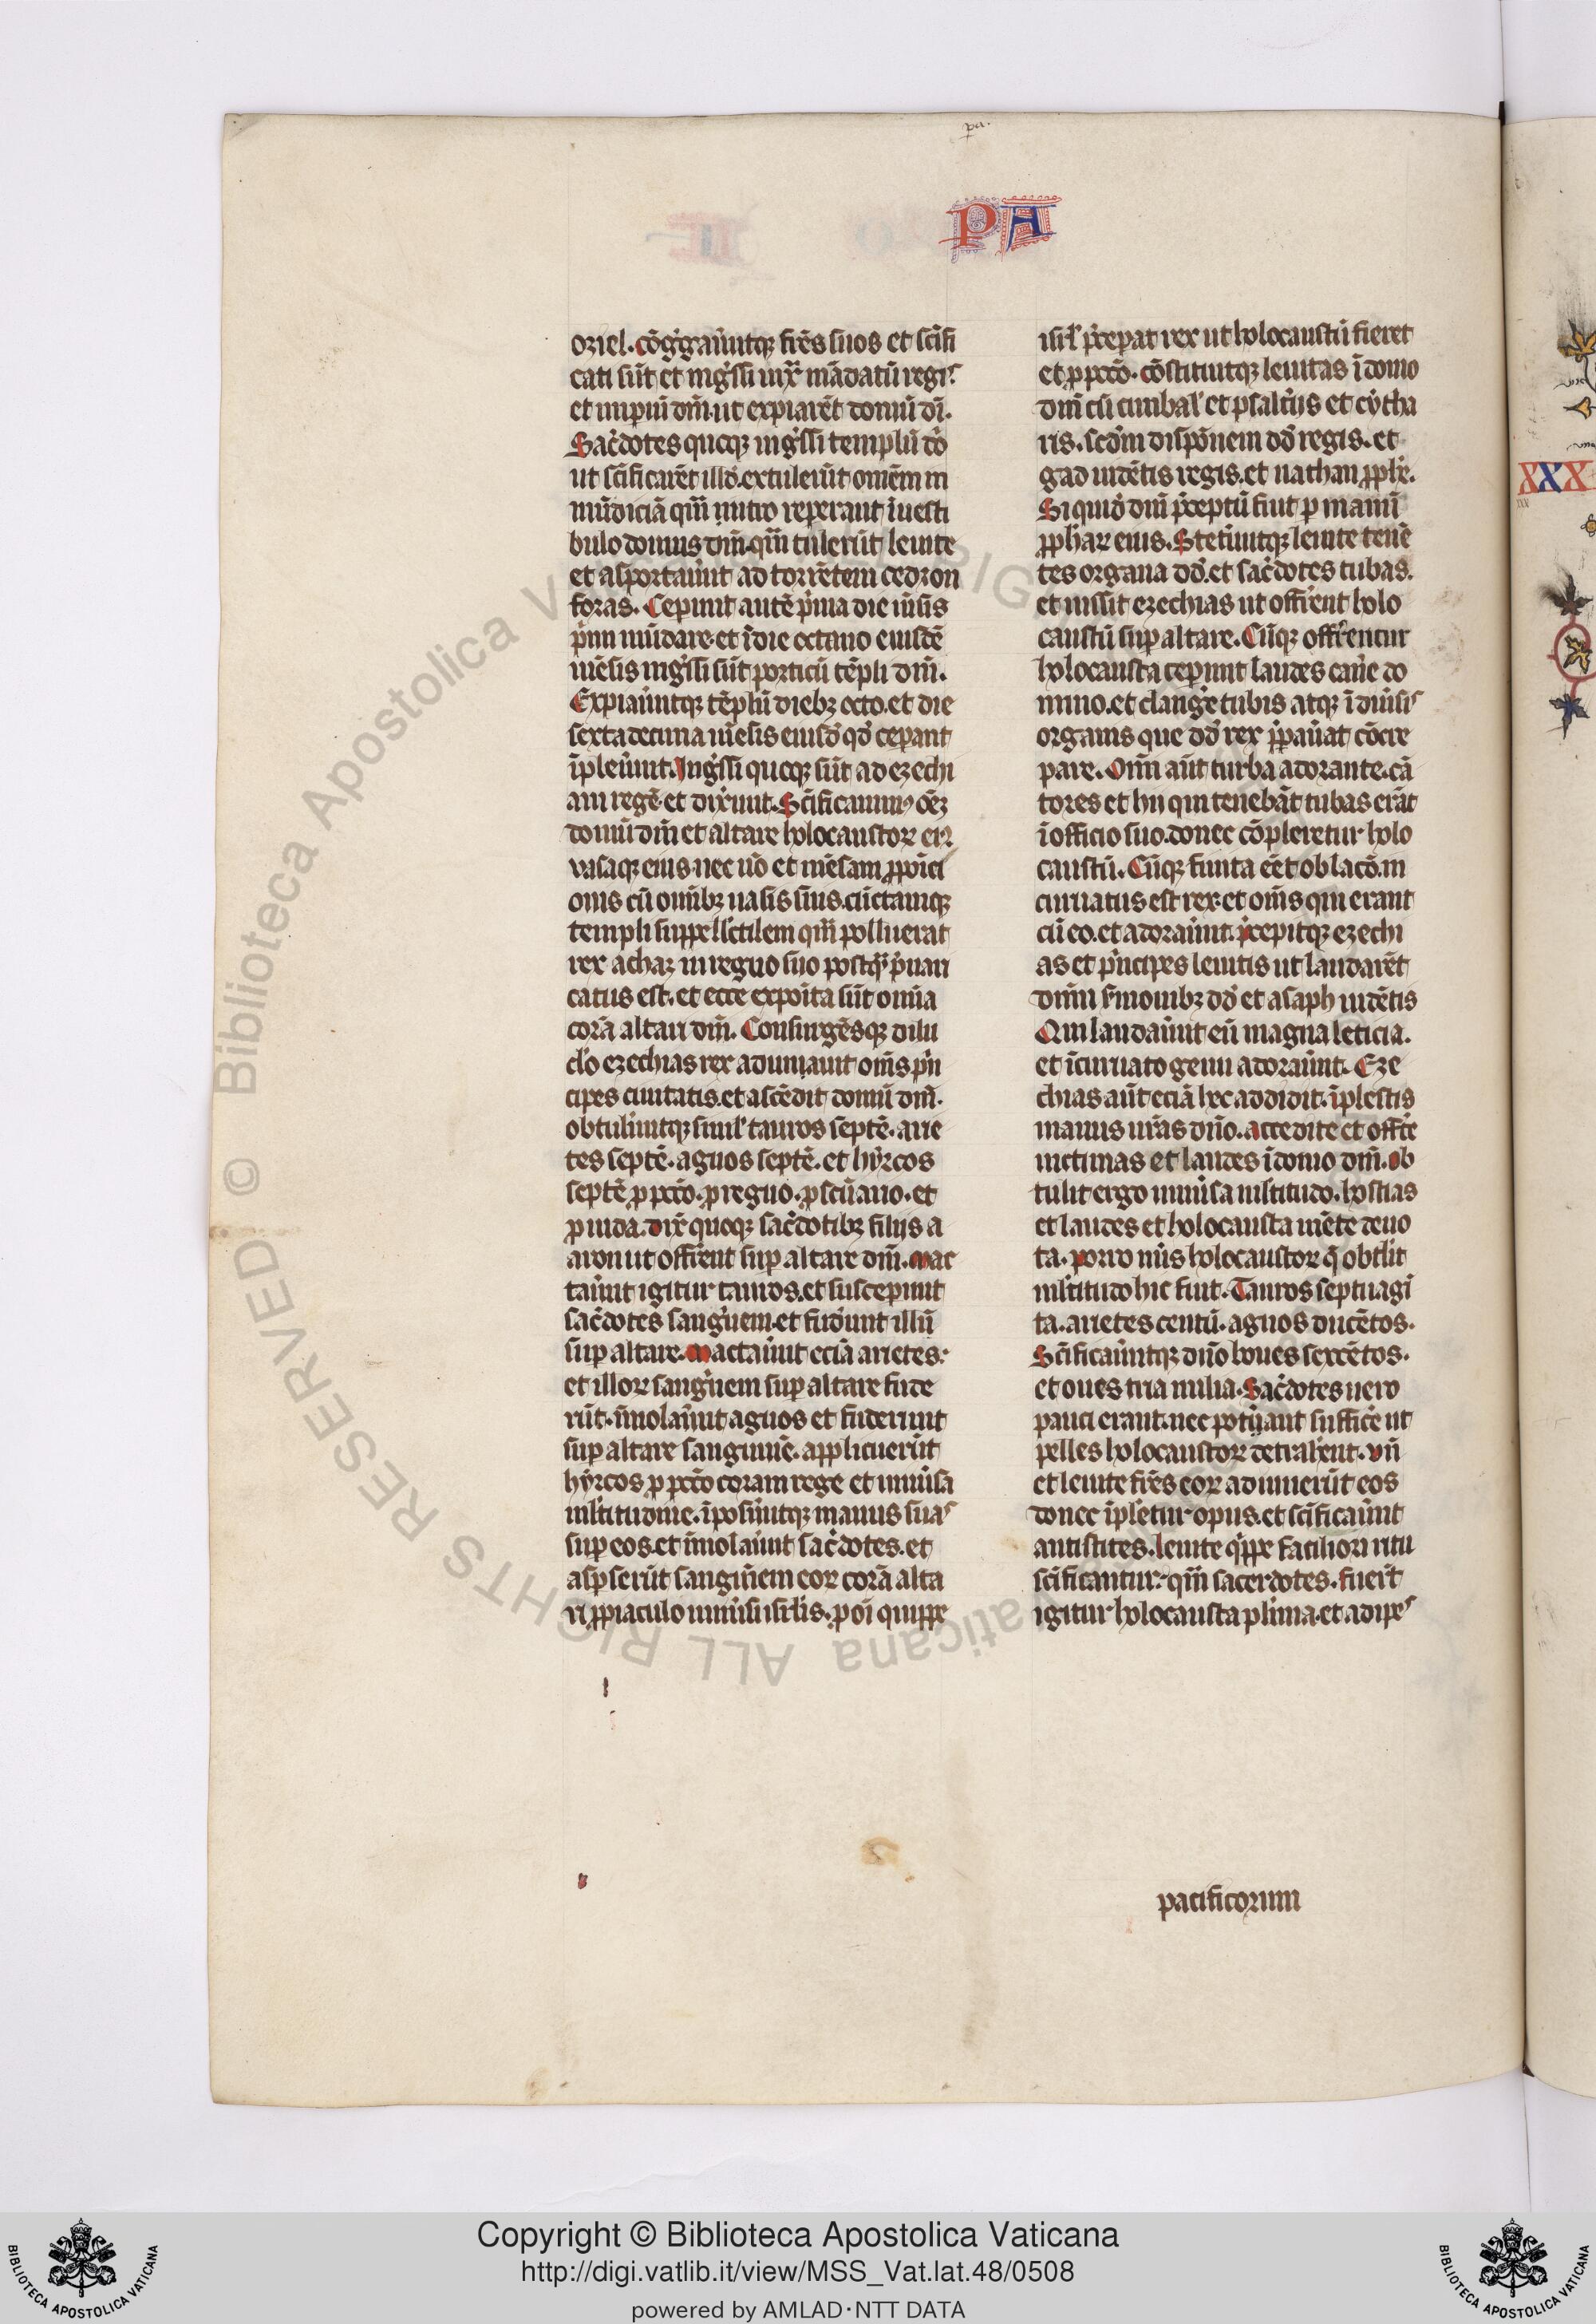 pa.
PA
oziel. cōgͥgaűntqꝫ fr̄es suos et scīfi
cati sūt et īngͥssi iux̄ mādatū regis
et impiū dn̄i. ut expiarēt domū dī.
Sac̄dotes quoqꝫ ingͥssi templū dō
ut scīficarēt illd̓. extulerūt omēm in
mūdiciā qͣm intro reperant ī uesti
bulo domus dn̄i. qͣm tulerūt leuite
et asportaűnt ad torrētem cedron
foras. Ceperunt autē pͥma die mn̄sis
pͥmi mūdare. et ī die octauo eiusdē
mēsis ingͥssi sūt porticū tēpli dn̄i.
Expiaűntqꝫ tēplū diebꝫ octo. et die
sextadecima mēsis eiusd̓ qd̓ ceperant
īpleűnt. Ingͥssi quoqꝫ sūt ad ezechi
am regē. et dixerunt. Scīficauimꝰ oēꝫ
domū dn̄i et altare holocaustoꝝ eiꝰ
vasaqꝫ eius. nec nō et mēsam ꝓpōici
onis cū omībꝫ uasis suis. cūctamqꝫ
templi suppellectilem qͣm polluerat
rex achaz in regno suo postqͣ pͥuari
catus est. et ecce expoita sūt omīa
corā altari dn̄i. Consurgēsqꝫ dilu
clo ezechias rex adunauit om̄s pͥn
cipes ciuitatis. et ascēdit domū dn̄i.
obtuleűntqꝫ simͥl tauros septē. arie
tes septē. agnos septē. et hyrcos
septē ꝓ pcc̄o. ꝓ regno. ꝓ scūario. et
ꝓ iuda. dix̄ quoqꝫ sac̄dotibꝫ filijs a
aron ut offerent suꝑ altare dn̄i. mac
taűnt igitur tauros. et susceperunt
sac̄dotes sangͥuem. et fuderunt illū
suꝑ altare. mactaűnt eciā arietes.
et illoꝝ sangͥuem suꝑ altare fude
rūt. īmolaűnt agnos et fuderunt
suꝑ altare sanguinē. applicuerūt
hyrcos ꝓ pcc̄o coram rege et uniűsa
mltitudine. īposueűntqꝫ manus suas
suꝑ eos. et īmolaűnt sac̄dotes. et
asꝑserūt sangͥuem eoꝝ corā alta
ri ꝓ piaculo uniűsi isrl̄is. ꝓ oī quippe
isrl̓ pͥceperat rex ut holocaustū fieret
et ꝓ pcc̄o. cōstituitqꝫ leuitas ī domo
dn̄i cū cimbal̓ et psalt̄ijs et cytha
ris. scd̄m dispōnem dd̓ regis. et
gad uidētis regis. et nathan ꝓphe.
Siquid̓ dn̄i pͥceptū fuit ꝑ manū
ꝓphaꝝ eius. Steteűntqꝫ leuite tenē
tes organa dd̓. et sac̄dotes tubas.
et iussit ezechias ut offerent holo
caustū suꝑ altare. Cūqꝫ offerentur
holocausta ceperunt laudes cane do
mino. et clange tubis atqꝫ ī diűsis
organis que dd̓ rex ꝑpaűat cōcre
pare. Omī aūt turba adorante. cā
tores et hii qui tenebāt tubas erāt
ī officio suo. donec cōpleretur holo
caustū. Cūqꝫ finita eēt oblacō. in
curuatus est rex. et om̄s qui erant
cū eo. et adoraűnt. pͥcepitqꝫ ezechi
as et pͥncipes leuitis ut laudarēt
dn̄m sͬmonibꝫ dd̓ et asaph uidētis
Qui laudaűnt eū magna leticia.
et īcuruato genu adoraűnt. Eze
chias aūt eciā hec addidit. īplestis
manus ur̄as dn̄o. accedite et offerte
uictimas et laudes ī domo dn̄i. ob
tulit ergo uniűsa mltitudo. hostias
et laudes et holocausta mēte deuo
ta. porro nūs holocaustoꝝ q̄ obtlit
mltitudo hic fuit. Tauros septuagī
ta. arietes centū. agnos ducētos.
Scīficaűntqꝫ dn̄o boues sexcētos.
et oues tria milia. Sac̄dotes uero
pauci erant. nec poterant suffice ut
pelles holocaustoꝝ detraherent. vn̄
et leuite fr̄es eoꝝ adiuuerūt eos
donec īpletur opus. et scīficaűnt
antistites. leuite qͥppe faciliori ritu
scīficantur. qͣm sacerdotes. fuerūt
igitur holocausta plīma. et adipes
pacificorum
XXX
© Biblioteca Apostolica Vaticana ALL RIGHTS RESERVED
Copyright © Biblioteca Apostolica Vaticana
http://digi.vatlib.it/view/MSS_Vat.lat.48/0508
powered by AMLAD･NTT DATA
BIBLIOTECA APOSTOLICA VATICANA
BIBLIOTECA APOSTOLICA VATICANA